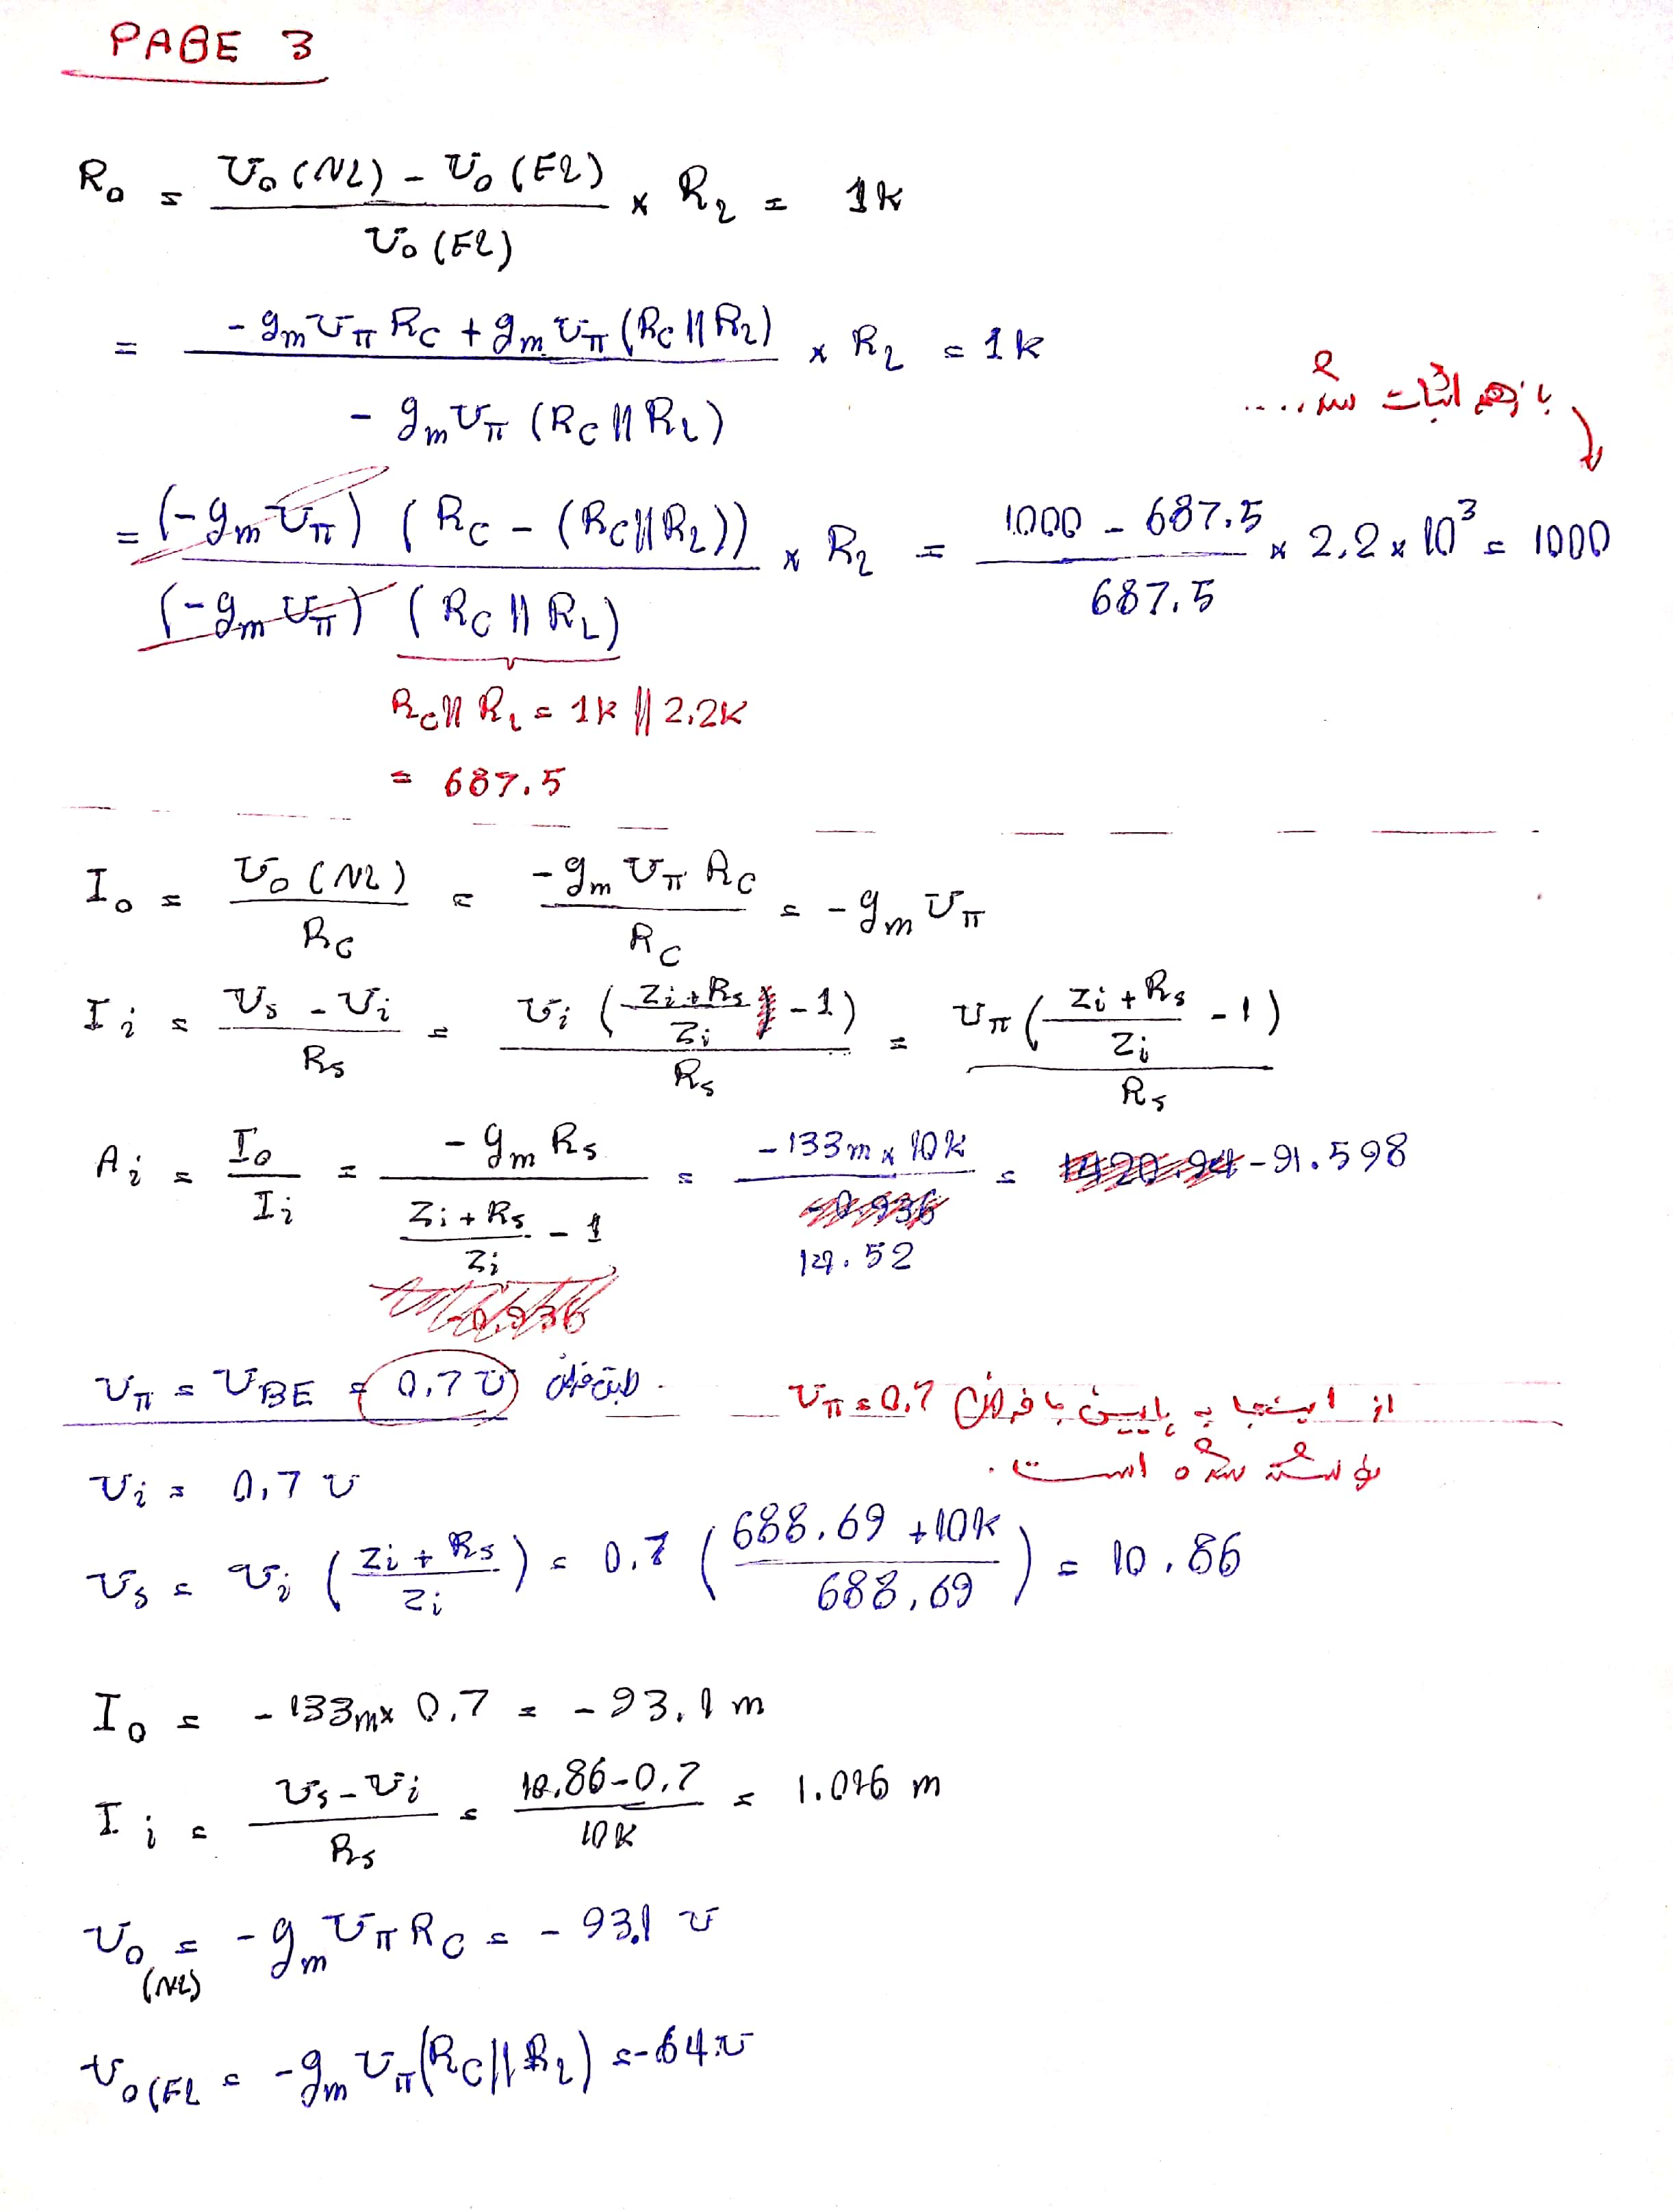 PAGE 3
R₀ = (V₀(NL) - V₀(FL)) / V₀(FL) × R_L = 1k
= (-g_m V_π R_C + g_m V_π (R_C || R_L)) / (-g_m V_π (R_C || R_L)) × R_L = 1k
باز هم اثبات شد....
= (-g_m V_π) (R_C - (R_C || R_L)) / ((-g_m V_π) (R_C || R_L)) × R_L = (1000 - 687.5) / 687.5 × 2.2 × 10³ = 1000
R_C || R_L = 1k || 2.2K
= 687.5
I₀ = V₀(NL) / R_C = -g_m V_π R_C / R_C = -g_m V_π
I_i = (V_s - V_i) / R_s = V_i ((Z_i + R_s) / Z_i - 1) / R_s = V_π ((Z_i + R_s) / Z_i - 1) / R_s
A_i = I₀ / I_i = -g_m R_s / ((Z_i + R_s) / Z_i - 1) = -133m × 10k / 14.52 = -91.598
V_π = V_BE = 0.7 V طبق فرض
از اینجا به پایین با فرض V_π = 0.7
نوشته شده است.
V_i = 0.7 V
V_s = V_i ((Z_i + R_s) / Z_i) = 0.7 ((688.69 + 10k) / 688.69) = 10.86
I₀ = -133m × 0.7 = -93.1 m
I_i = (V_s - V_i) / R_s = (10.86 - 0.7) / 10K = 1.016 m
V₀(NL) = -g_m V_π R_C = -93.1 V
V₀(FL = -g_m V_π (R_C || R_L) = -64 V